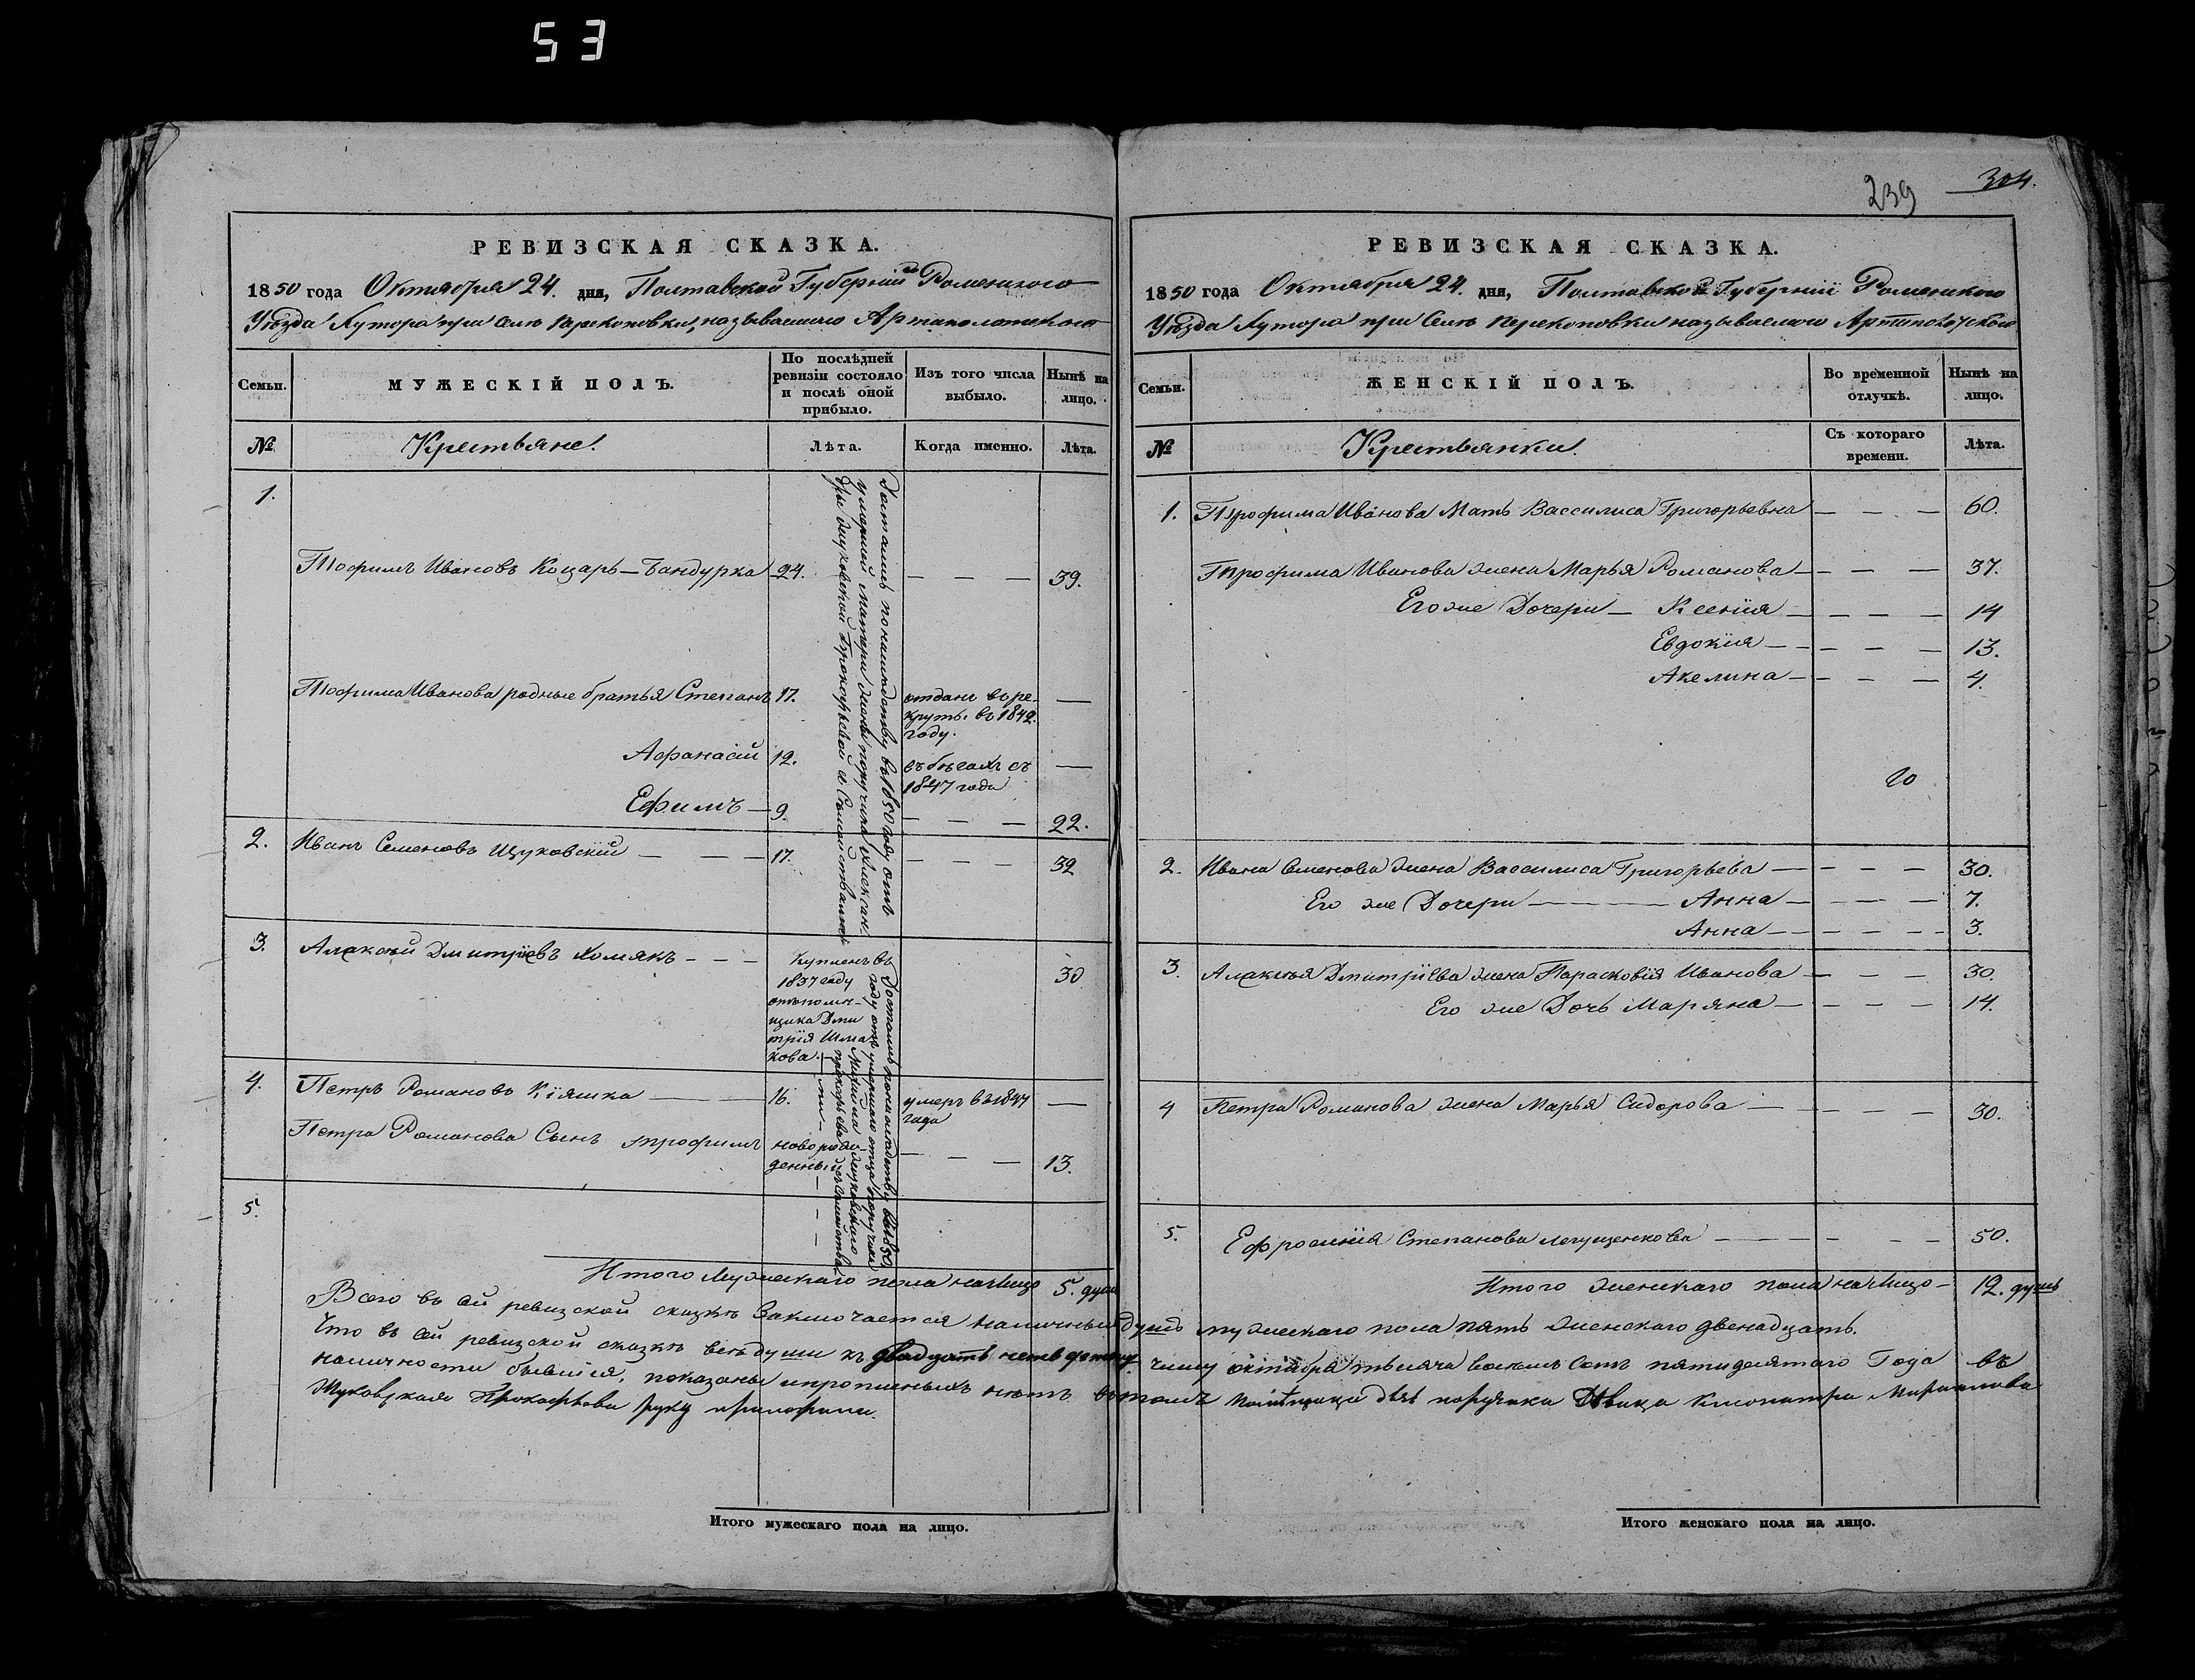 53
239 304.
РЕВИЗСКАЯ СКАЗКА.
1850 года Октября 24. дня, Полтавской Губерніи Роменского
Уѣзда Хутора при Селѣ Перекоповки, называемого Артополотского
Семьи.
МУЖЕСКІЙ ПОЛЪ.
По послѣдней ревизіи состояло и послѣ оной прибыло.
Изъ того числа выбыло.
Нынѣ на лицо.
№
Крестьяне.
Лѣта.
Когда именно.
Лѣта.
1.
Тrофимъ Ивановъ Коцарь — Бандурка 24. — — — 39.
Трофима Иванова родные братья Степанъ 17. отданъ въ ре-
круты. въ 1842.
году. —
Афанасій 12. въ бѣгахъ съ —
1847 года
Ефимъ — 9. — — — 22.
2. Иванъ Семеновъ Щуковскій — — — 17. — — — 32
Достались по наслѣдству въ 1850 году отъ
умершей матери жены поручика Александ-
ры Жуковской Прокофьевой
3. Алексѣй Дмитріевъ Хомякъ - - - Купленъ въ 30
1837 году
отъ помѣ-
щика Дми
трія Шма
кова.
4. Петръ Романовъ Кіяшка ——— 16. умеръ въ 1847 —
года
Петра Романова Сынъ Трофимъ новорож
денный — — — 13.
Достались по наслѣдству въ 1850
году отъ умершаго отца поручика
5.
Итого Мужескаго пола на Лицо 5. душ
РЕВИЗСКАЯ СКАЗКА.
1850 года Октября 24. дня, Полтавской Губерніи Роменского
Уѣзда Хутора при Селѣ Перекоповки называемого Артополотского
Семьи.
ЖЕНСКІЙ ПОЛЪ.
Во временной отлучкѣ.
Нынѣ на лицо.
№
Крестьянки.
Съ котораго времени.
Лѣта.
1. Трофима Иванова Мать Вассилиса Григорьевна — — — 60.
Трофима Иванова жена Марья Романова — — — 37.
Его же Дочери — Ксенія — — — 14
Евдокія — — — 13.
Акелина — — — 4.
2. Ивана Семенова жена Вассилиса Григорьева — — — 30.
Его же Дочери ——— Анна — — — 7.
Анна — — — 3.
3. Алексѣя Дмитріева жена Парасковія Иванова — — — 30.
Его же Дочь Марьяна — — — 14.
4 Петра Романова жена Марья Сидорова — — — 30.
5. Ефросинія Степанова — — — 50.
Итого женскаго пола на Лицо — 12. душъ
Всего въ сей ревизской сказкѣ Заключается наличныхъ душъ мужескаго пола пять женскаго двенадцать.
Что въ сей ревизской сказкѣ всѣ души къ двадцать четвертому числу октября тысяча восемь Сотъ пятидесятаго Года въ
наличности бывшія, показаны и прописныхъ нѣтъ въ томъ поручика Девица Клеопатра
Жуковская Прокофьева руку приложила.
Итого мужескаго пола на лицо.
Итого женскаго пола на лицо.